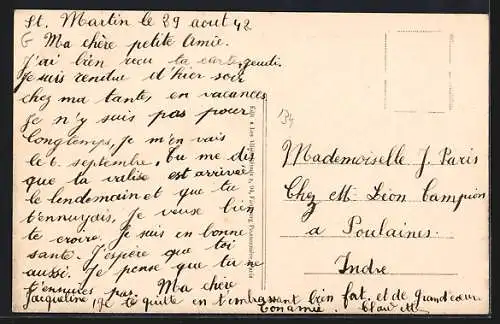 St. Martin le 29 aout 42
Ma chère petite Amie.
J'ai bien reçu ta carte, jeudi.
Je suis rendue d'hier soir
chez ma tantes en vacances
Je n'y suis pas pour
longtemps, je m'en vais
le 6. septembre, tu me dis
que ta valise est arrivée
le lendemain et que tu
t'ennuyais, je veux bien
te croire. Je suis en bonne
santé. J'espère que toi
aussi. Je pense que tu ne
t'ennuies pas. Ma chère
Jacqueline, je te quitte en t'embrassant bien fort. et de grand cœur
Ton amie.
34
Mademoiselle J. Paris
Chez M. Léon Campion
a Poulaines.
Indre